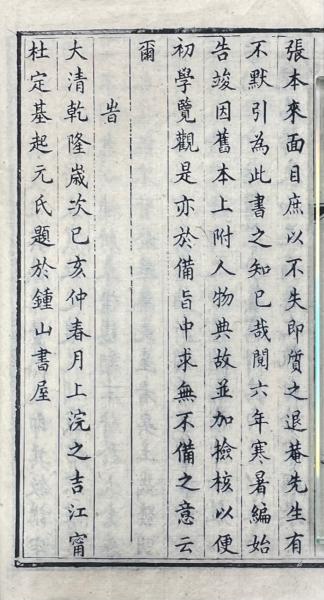 張本來面目庶以不失即質之退菴先生有
不默引為此書之知已哉閱六年寒暑編始
告竣因舊本上附人物典故並加檢核以便
初學覽觀是亦於備旨中求無不備之意云
爾
旹
大清乾隆嵗次已亥仲春月上浣之吉江甯
杜定基起元氏題於鍾山書屋